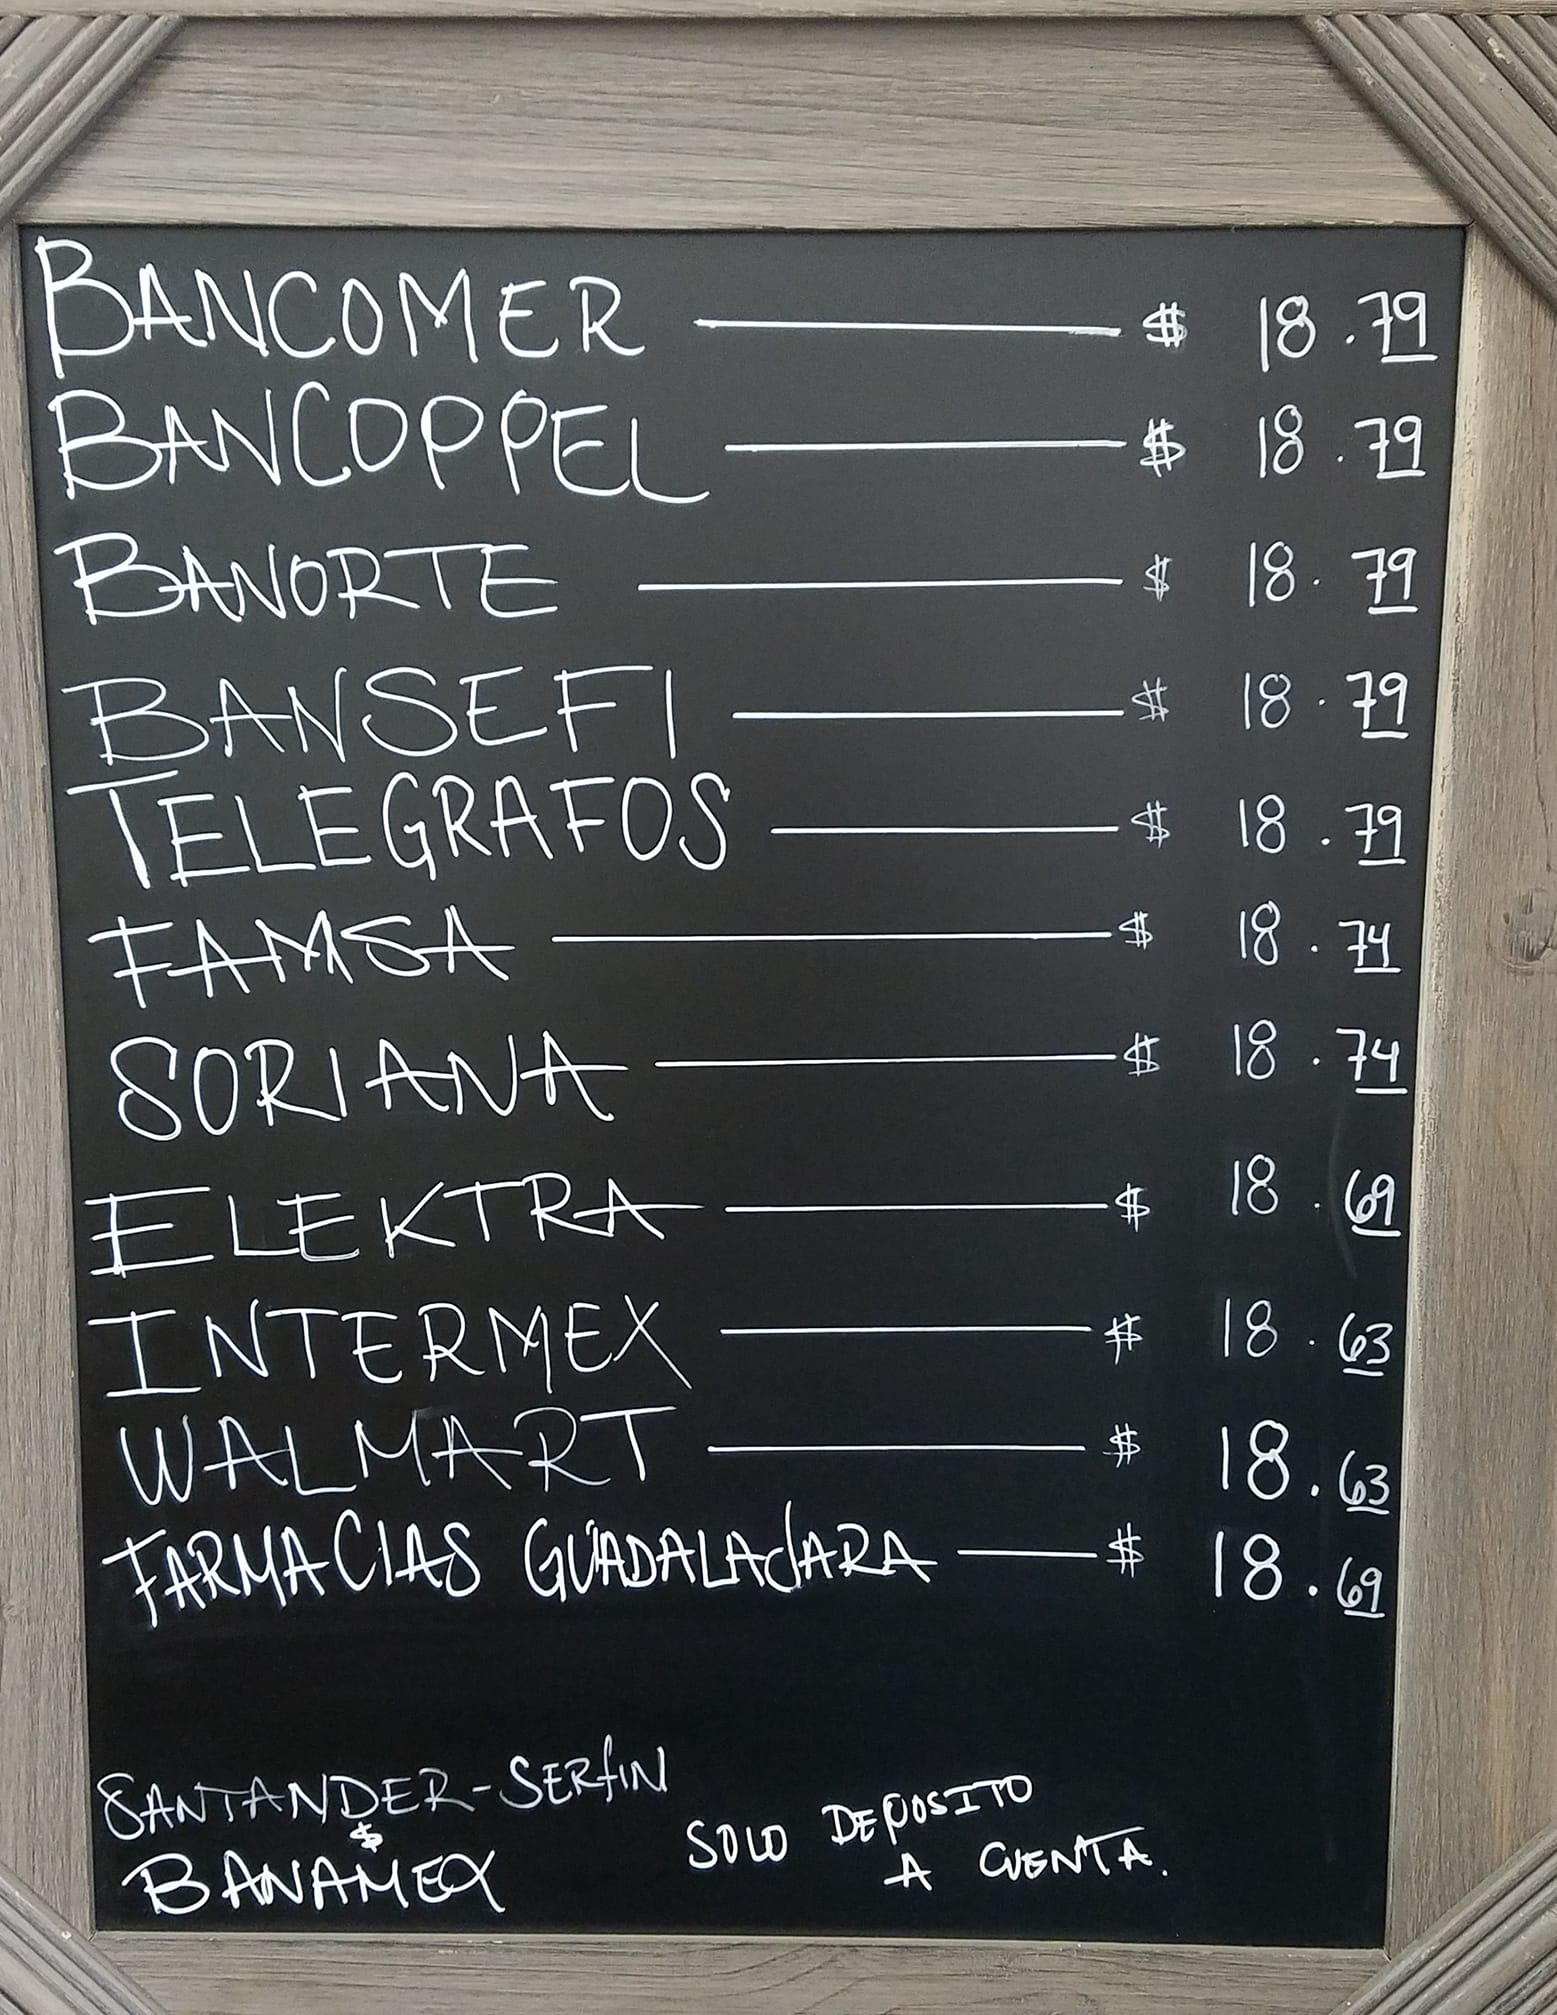 BANCOMER $ 18.79
BANCOPPEL $ 18.79
BANORTE $ 18.79
BANSEFI $ 18.79
TELEGRAFOS $ 18.79
FAMSA $ 18.74
SORIANA $ 18.74
ELEKTRA $ 18.69
INTERMEX $ 18.63
WALMART $ 18.63
FARMACIAS GUADALAJARA $ 18.69
SANTANDER-SERFIN
$
BANAMEX
SOLO DEPOSITO
A CUENTA.